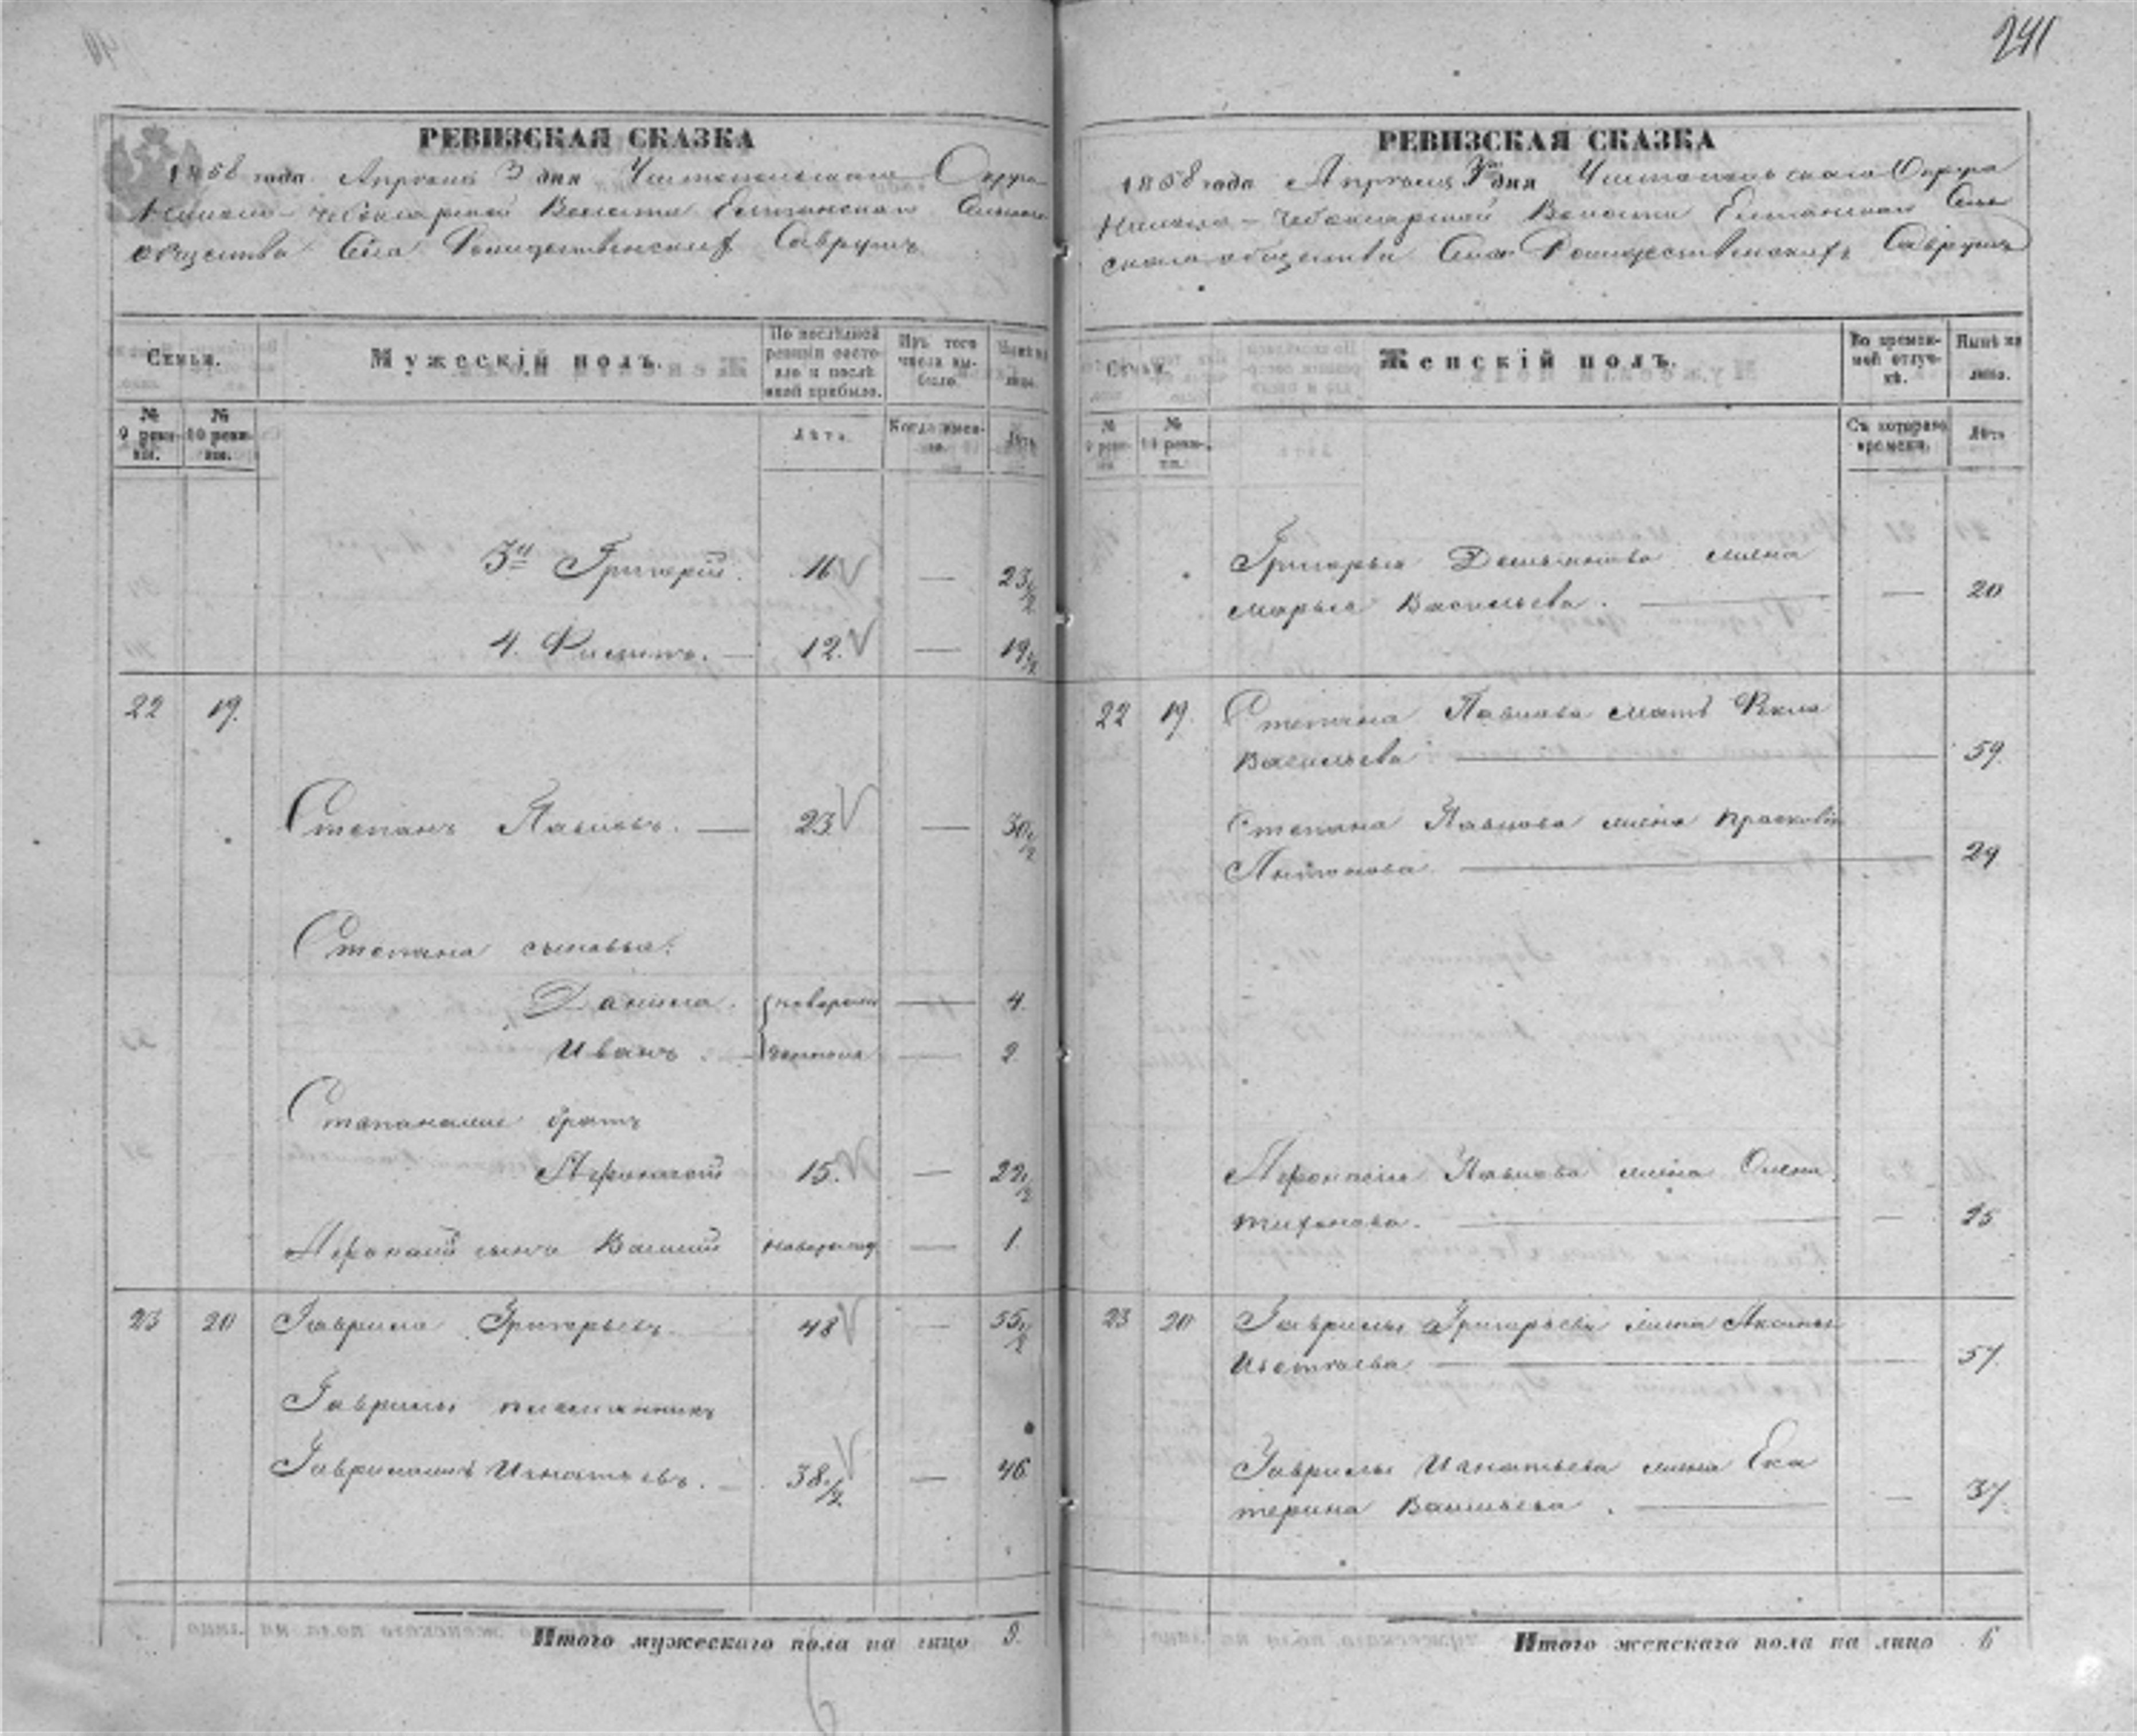 241
РЕВИЗСКАЯ СКАЗКА
1858 года Апреля 3 дня Чистопольскаго Округа
Чебоксарской Волости Елтанскаго
общества Села Рождественскихъ Саврушъ
Семьи.
Мужескій полъ.
По послѣдней ревизіи состояло и послѣ оной прибыло.
Изъ того числа выбыло.
Нынѣ на лицо.
№ 9 ревизіи.
№ 10 ревизіи.
Лѣта.
Когда именно.
Лѣта
3й Григорій. 16 — 23 1/2
4. Филипъ. — 12. — 19 1/2
22 19.
Степанъ Павловъ. — 23 — 30 1/2
Степана сыновья:
Данила. новорожд — 4.
Иванъ. — — 2
Степана братъ
Афонасій 15. — 22 1/2
Афонасія сынъ Василій новорожд — 1.
23 20 Гаврила Григорьевъ. 48 — 55 1/2
Гаврилы племянникъ
Игнатьевъ. 38 1/2 — 46
Итого мужескаго пола на лицо 9.
РЕВИЗСКАЯ СКАЗКА
1858 года Апреля 3 дня Чистопольскаго Округа
Чебоксарской Волости Елтанскаго Сель
скаго общества Села Рождественскихъ Саврушъ
Семьи.
Женскій полъ.
Во временной отлучкѣ.
Нынѣ на лицо.
№ 9 ревизіи.
№ 10 ревизіи.
Съ котораго времени.
Лѣта
Григорья Демьянова жена
Марья Васильева. — — 20
22 19. Степана Павлова мать Фекла
Васильева — 59.
Степана Павлова жена Прасковья
Антонова — 29
Афонасія Павлова жена Олена
Тихонова. — — 25
23 20 Гаврилы Григорьева жена Аксинья
— 57.
Гаврилы Игнатьева жена Ека
терина Васильева. — — 37.
Итого женскаго пола на лицо 6